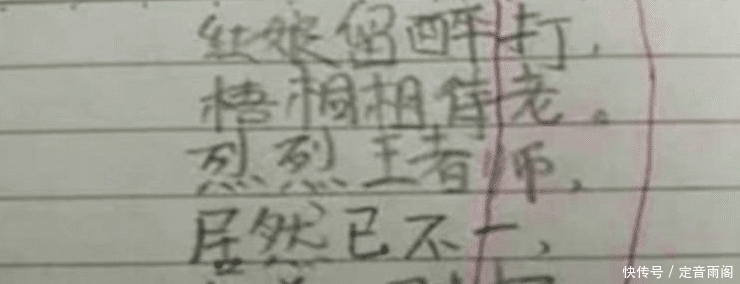 红娘留醉打,
梧桐相待老。
烈烈王者师,
居然已不一、
快传号 / 定音雨阁